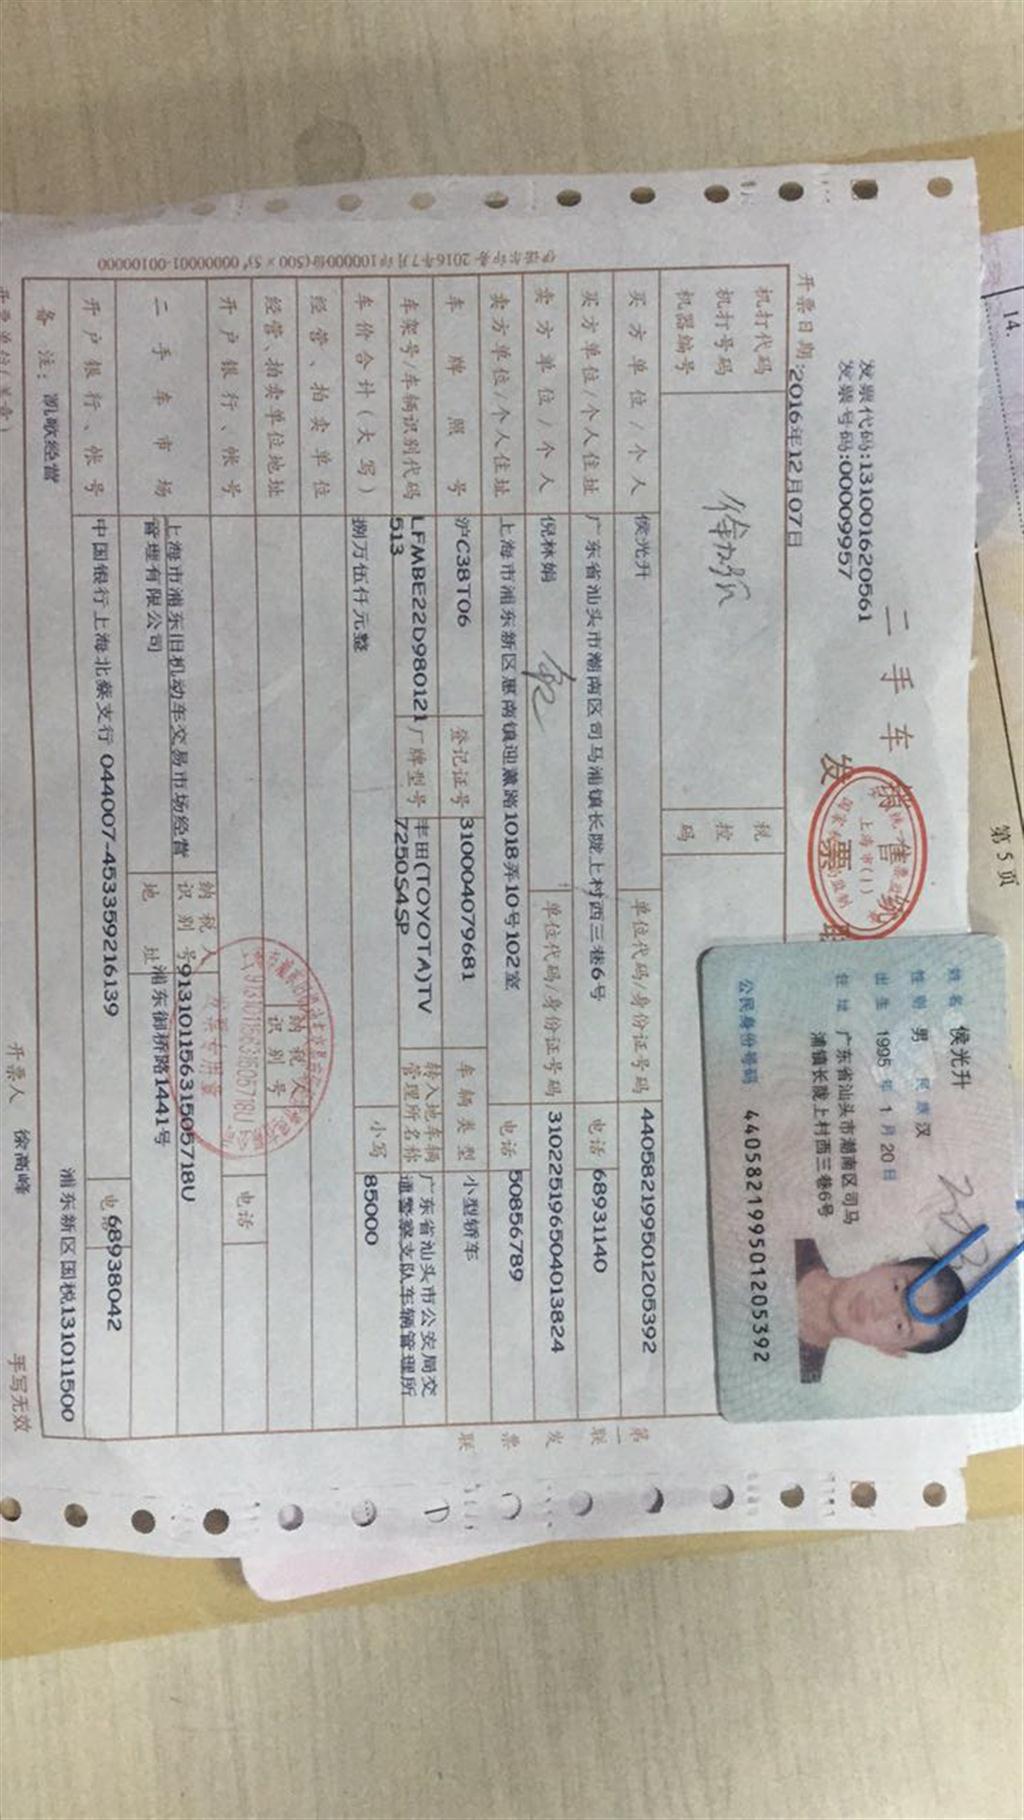 第 5 页
14.
二手车销售统一发票
发票联
发票代码:131001620561
发票号码:00009957
开票日期:2016年12月07日
机打代码
机打号码
机器编号
税控码
买方单位/个人 侯光升 单位代码/身份证号码 440582199501205392
买方单位/个人住址 广东省汕头市潮南区司马浦镇长陇上村西三巷6号 电话 68931140
卖方单位/个人 倪林娟 单位代码/身份证号码 310225196504013824
卖方单位/个人住址 上海市浦东新区惠南镇迎薰路1018弄10号102室 电话 50856789
车牌照号 沪C38T06 登记证号 310004079681 车辆类型 小型轿车
车架号/车辆识别代码 LFMBE22D980121513 厂牌型号 丰田(TOYOTA)TV7250S4SP 转入地车辆管理所名称 广东省汕头市公安局交通警察支队车辆管理所
车价合计(大写) 捌万伍仟元整 小写 85000
经营、拍卖单位
经营、拍卖单位地址 纳税人识别号
开户银行、帐号 电话
二手车市场 上海市浦东旧机动车交易市场经营管理有限公司 纳税人识别号 91310115631505718U
地址 浦东御桥路1441号
开户银行、帐号 中国银行上海北蔡支行 044007-453359216139 电话 68938042
备注: 凯歌经营 浦东新区国税131011500
开票单位(盖章) 开票人 徐高峰 手写无效
第一联 发票联
姓名 侯光升
性别 男 民族 汉
出生 1995 年 1 月 20 日
住址 广东省汕头市潮南区司马
浦镇长陇上村西三巷6号
公民身份号码 440582199501205392